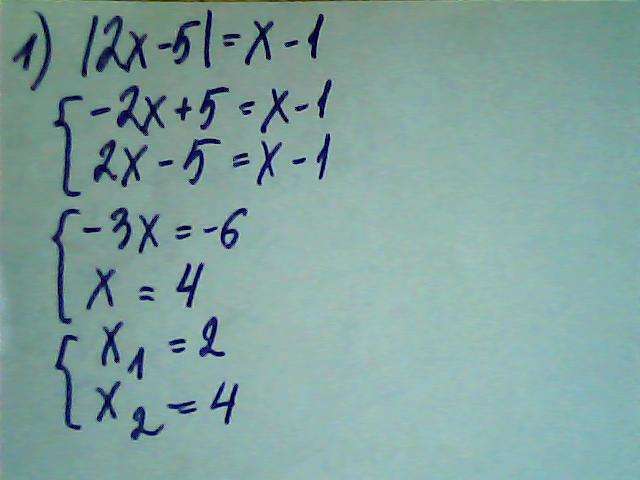 1) |2x-5|=x-1
{ -2x+5=x-1
2x-5=x-1
{ -3x=-6
x=4
{ x₁=2
x₂=4